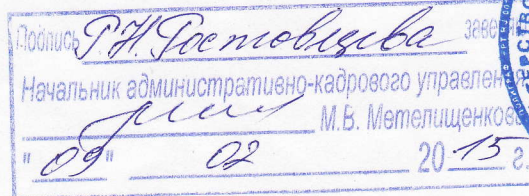 Подпись Г.Н. Ростовцева заве
Начальник административно-кадрового управлен
М.В. Метелищенков
"09" 02 2015 г